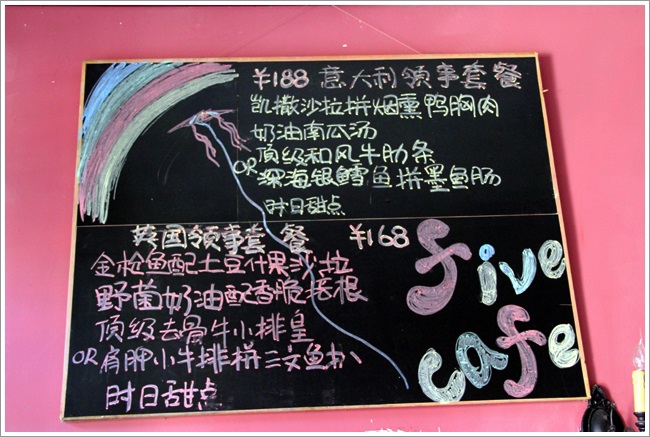 ¥188 意大利领事套餐
凯撒沙拉拼烟熏鸭胸肉
奶油南瓜汤
顶级和风牛肋条
OR 深海银鳕鱼拼墨鱼肠
时日甜点
英国领事套餐 ¥168
金枪鱼配土豆什果沙拉
野菌奶油配香脆培根
顶级去骨牛小排皇
OR 肩胛小牛排拼三文鱼扒
时日甜点
five
cafe